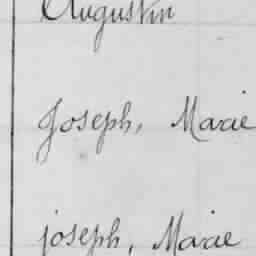 Augustin
Joseph, Marie
joseph, Marie